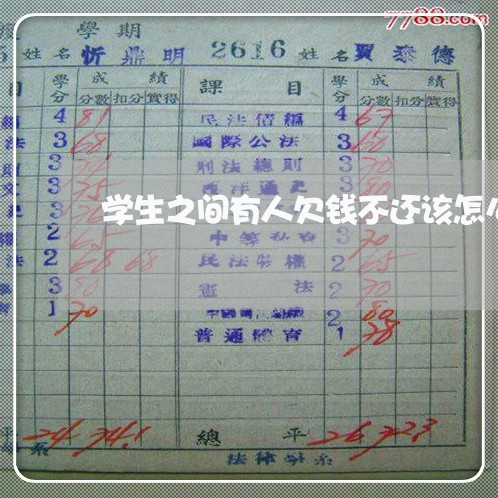 7788.com
學期
姓名 忻鼎明 2616 姓名 賈泰德
目 學分 成績 課目 學分 成績
分數 扣分 實得 分數 扣分 實得
4 81 民法債編 4 67
法 3 68 國際公法 3 60
3 刑法總則 3 70
3 75 西洋通史 80
学生之间有人欠钱不还该怎
2 65 3 70
法 2 68 68 民法物權 2 65
3 80 憲法 2 70
1 70 2 80
普通體育 1 78
平 24 74.1 總平 26 72.3
系 法律學系